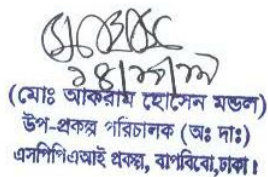 (মোঃ আকরাম হোসেন মন্ডল)
উপ-প্রকল্প পরিচালক (অঃ দাঃ)
এসপিপিএআই প্রকল্প, বাপবিবো,ঢাকা।